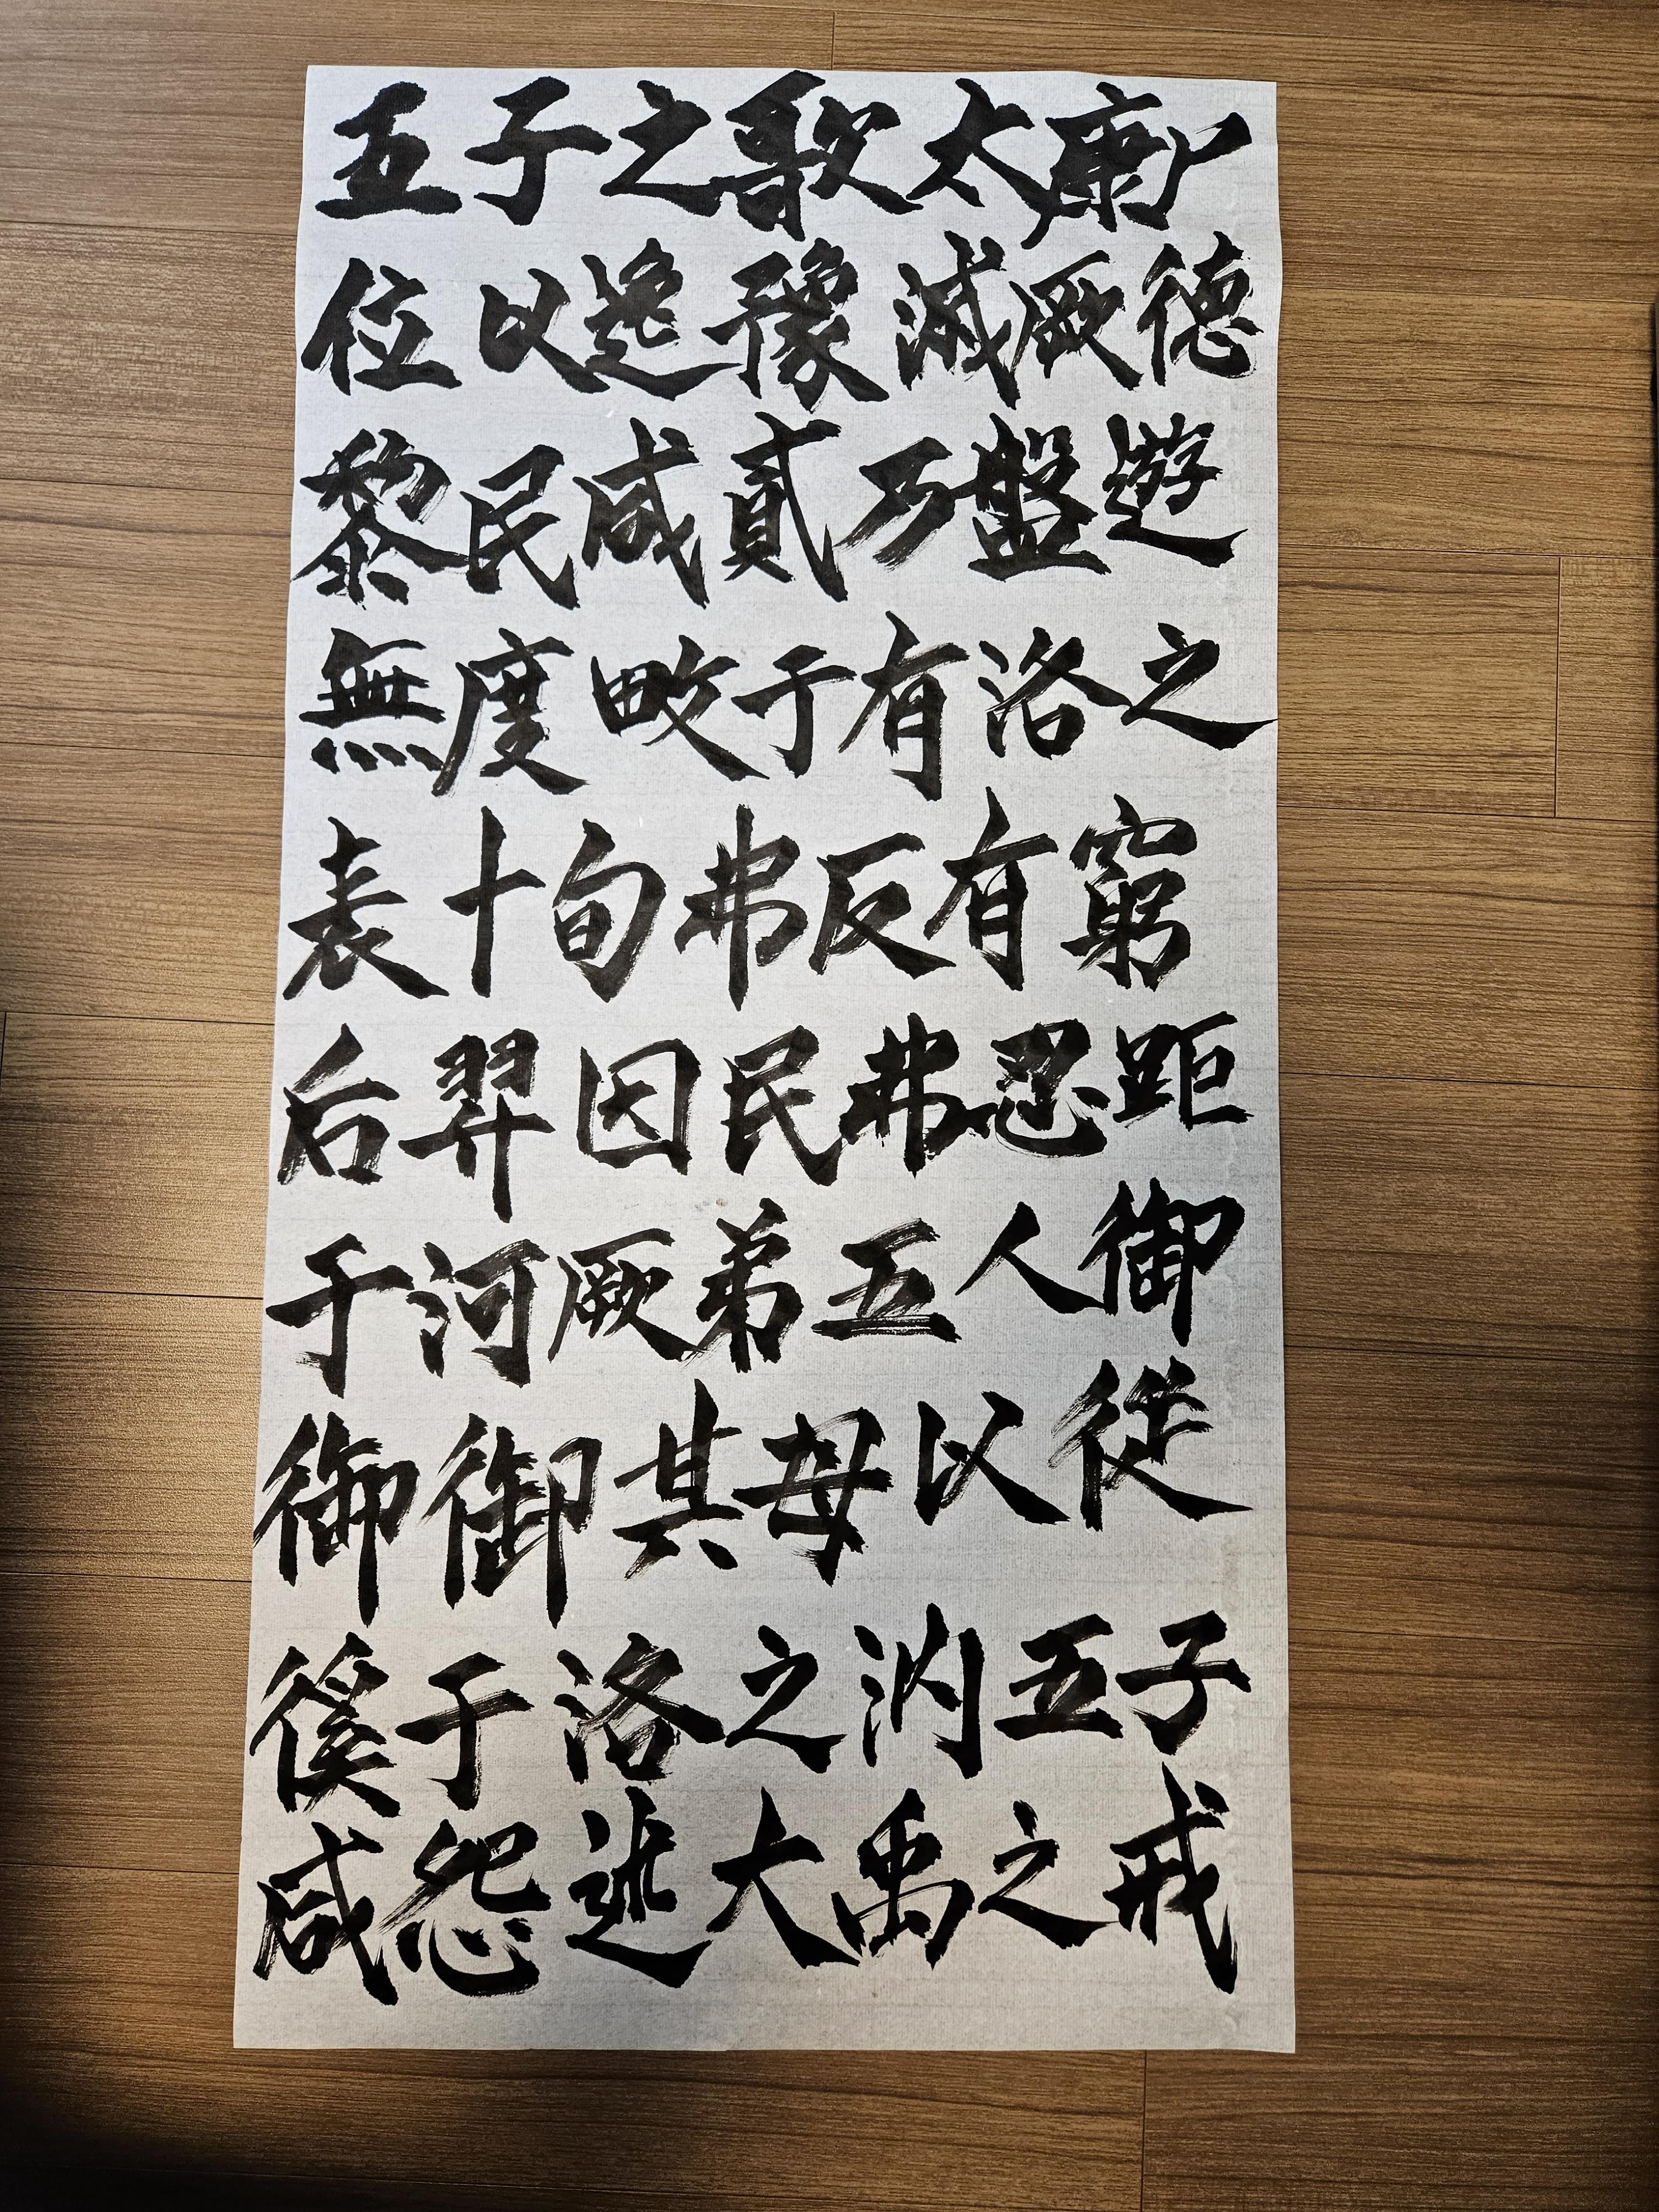 五子之歌太康尸
位以逸豫滅厥德
黎民咸貳乃盤遊
無度畋于有洛之
表十旬弗反有窮
后羿因民弗忍距
于河厥弟五人御
御御其母以從
徯于洛之汭五子
咸怨述大禹之戒